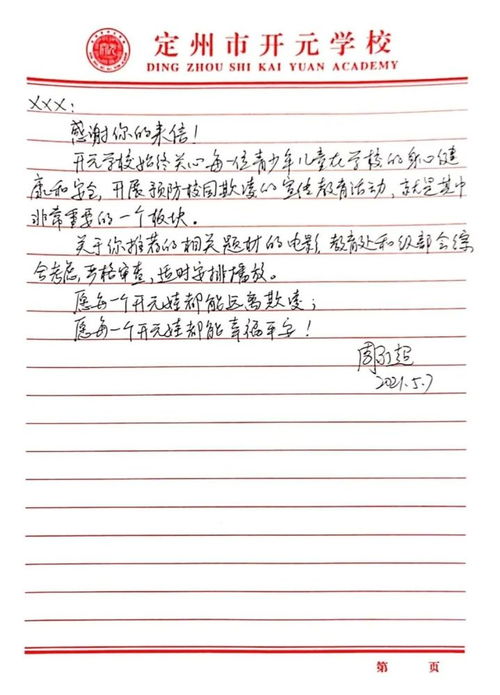 定州市开元学校
DING ZHOU SHI KAI YUAN ACADEMY
XXX：
感谢你的来信！
开元学校始终关心每一位青少年儿童在学校的身心健
康和安全，开展预防校园欺凌的宣传教育活动，就是其中
非常重要的一个板块。
关于你推荐的相关题材的电影，教育处和级部会综
合考虑，严格审查，适时安排播放。
愿每一个开元娃都能远离欺凌；
愿每一个开元娃都能幸福平安！
2021.5.7
第 页